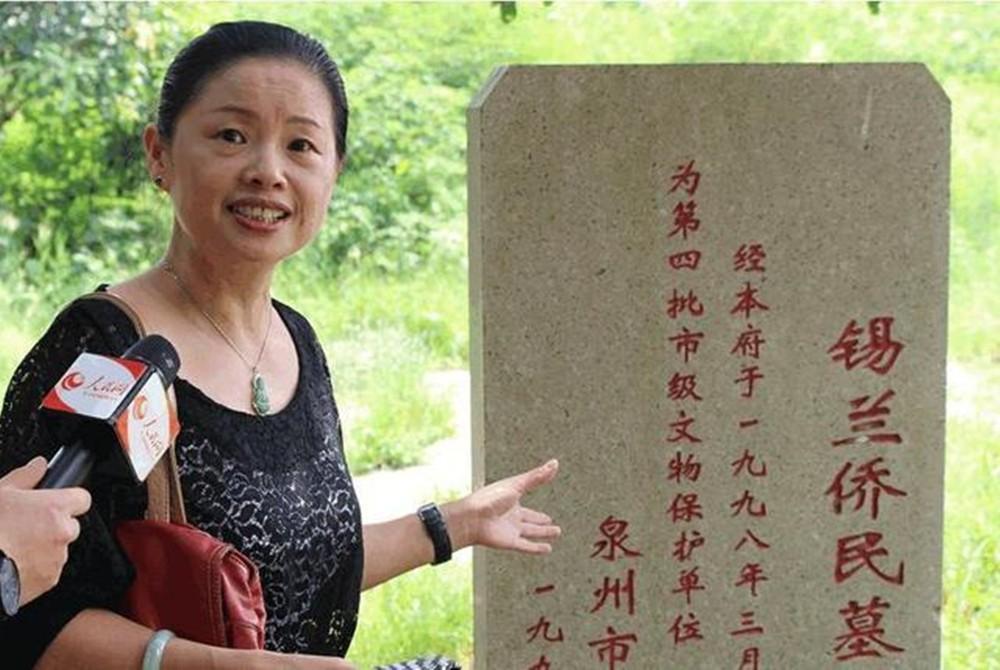 锡兰侨民墓
经本府于一九九八年三月
为第四批市级文物保护单位
泉州市
一九九
人民网
人民网